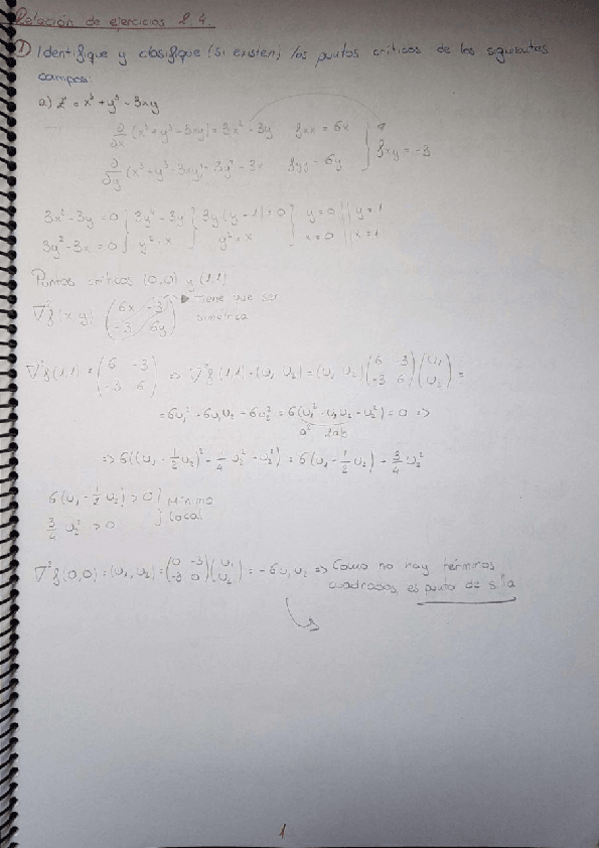 Relación de ejercicios 2.4.
① Identifique y clasifique (si existen) los puntos críticos de los siguientes
campos:
a) z = x³ + y³ - 3xy
∂/∂x (x³ + y³ - 3xy) = 3x² - 3y fxx = 6x
∂/∂y (x³ + y³ - 3xy) = 3y² - 3x fyy = 6y } fxy = -3
3x² - 3y = 0 } 3y⁴ - 3y } 3y(y - 1) = 0 } y = 0 || y = 1
3y² - 3x = 0 } y² = x } y² = x } x = 0 || x = 1
Puntos críticos (0,0) y (1,1)
∇²f(x,y) (6x -3) Tiene que ser
(-3 6y) simétrica
∇²f(1,1) = (6 -3 / -3 6) => ∇²f(1,1) = (u₁, u₂) = (u₁, u₂) (6 -3 / -3 6) (u₁ / u₂) =
= 6u₁² - 6u₁u₂ - 6u₂² = 6(u₁² - u₁u₂ - u₂²) = 0 =>
a² 2ab
=> 6((u₁ - 1/2 u₂)² - 1/4 u₂² - u₂²) = 6(u₁ - 1/2 u₂) - 3/4 u₂²
6(u₁ - 1/2 u₂) > 0 } Mínimo
3/4 u₂² > 0 } local
∇²f(0,0) = (u₁, u₂) = (0 -3 / -3 0) (u₁ / u₂) = -6u₁u₂ => Como no hay términos
cuadrados, es punto de silla
1